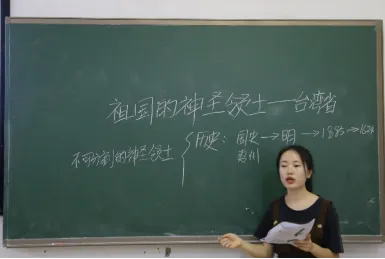 祖国的神圣领土—台湾省
不可分割的神圣领土 { 历史: 周史→明→1885→1624
夷州